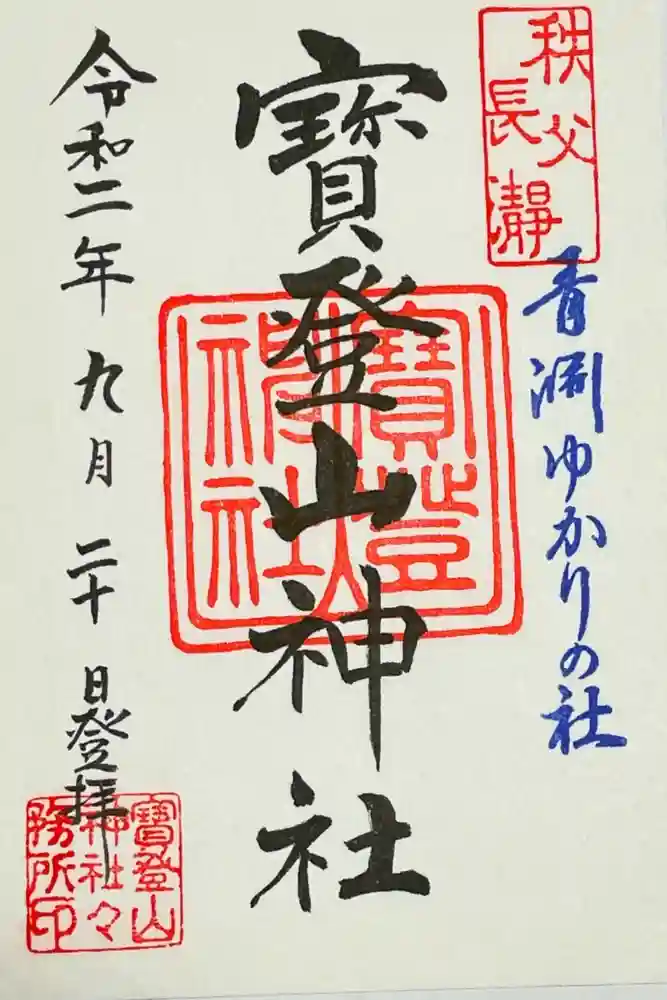 秩父
長瀞
青淵ゆかりの社
寳登山神社
寳登山
神社
令和二年九月二十日登拝
寳登山
神社々
務所印